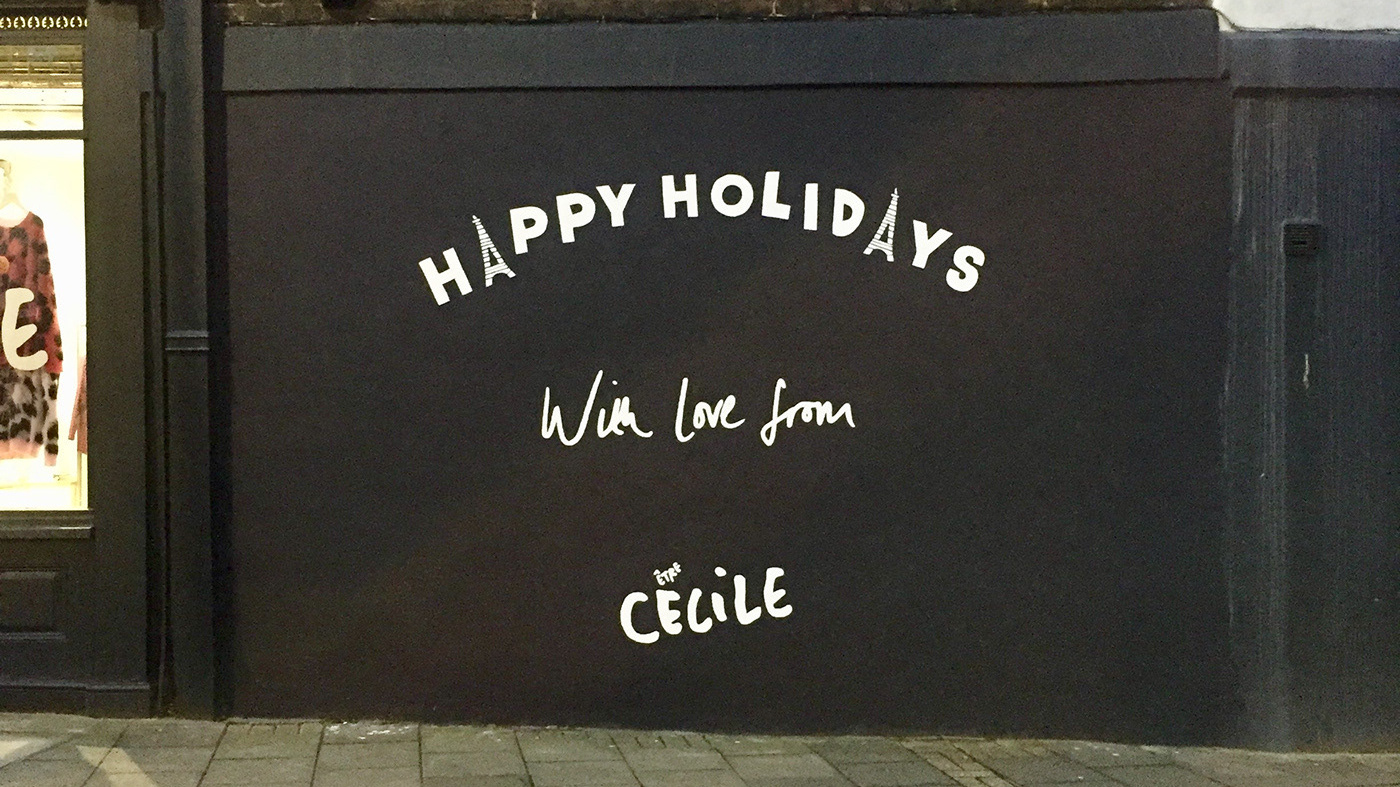 HAPPY HOLIDAYS
With love from
ÊTRE
CÉCILE
E